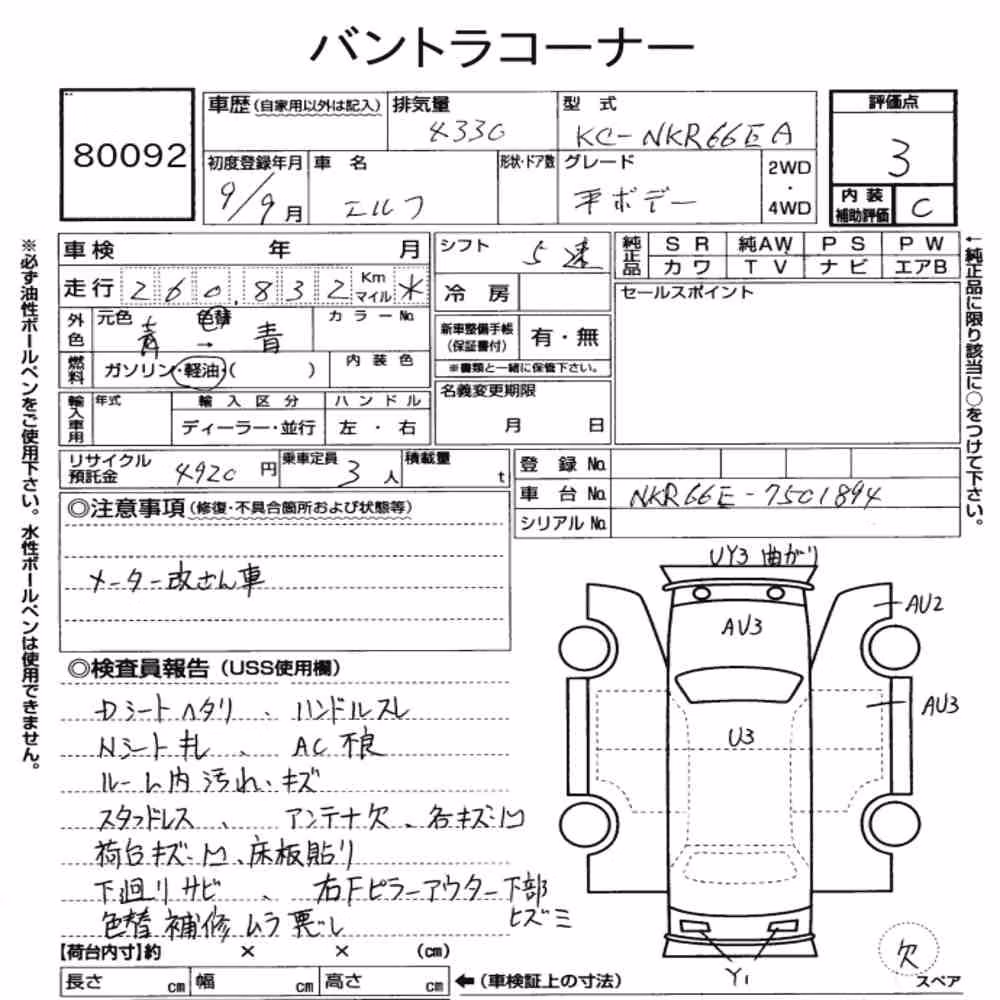 バントラコーナー
80092
車歴(自家用以外は記入)
排気量
4330
型 式
KC-NKR66EA
評価点
3
初度登録年月
9/9月
車 名
エルフ
形状・ドア数
グレード
平ボデー
2WD
・
4WD
内装
補助評価
C
車検 年 月
走行 260,832 Km マイル *
外色
元色 青
色替
→ 青
カラーNo.
燃料
ガソリン・軽油・( )
内装色
輸入車用
年式
輸入区分
ディーラー・並行
ハンドル
左・右
シフト 5速
冷房
新車整備手帳
(保証書付)
有・無
※書類と一緒に保管下さい。
名義変更期限
月 日
純正品
SR 純AW PS PW
カワ TV ナビ エアB
セールスポイント
←純正品に限り該当に○をつけて下さい。
※必ず油性ボールペンをご使用下さい。水性ボールペンは使用できません。
リサイクル
預託金
4920円
乗車定員
3人
積載量
t
登録No.
車台No. NKR66E-7501894
シリアルNo.
◎注意事項(修復・不具合箇所および状態等)
メーター改さん車
◎検査員報告(USS使用欄)
Dシートヘタリ、ハンドルスレ
Nシート札、AC不良
ルーム内汚れ・キズ
スタッドレス、アンテナ欠、各キズ・凹
荷台キズ・凹、床板貼り
下廻りサビ、右Fピラーアウター下部
ヒズミ
色替補修ムラ悪し
UY3 曲がり
AU3
AU2
AU3
U3
Y1
欠
スペア
【荷台内寸】約 × × (cm)
長さ cm 幅 cm 高さ cm
←(車検証上の寸法)